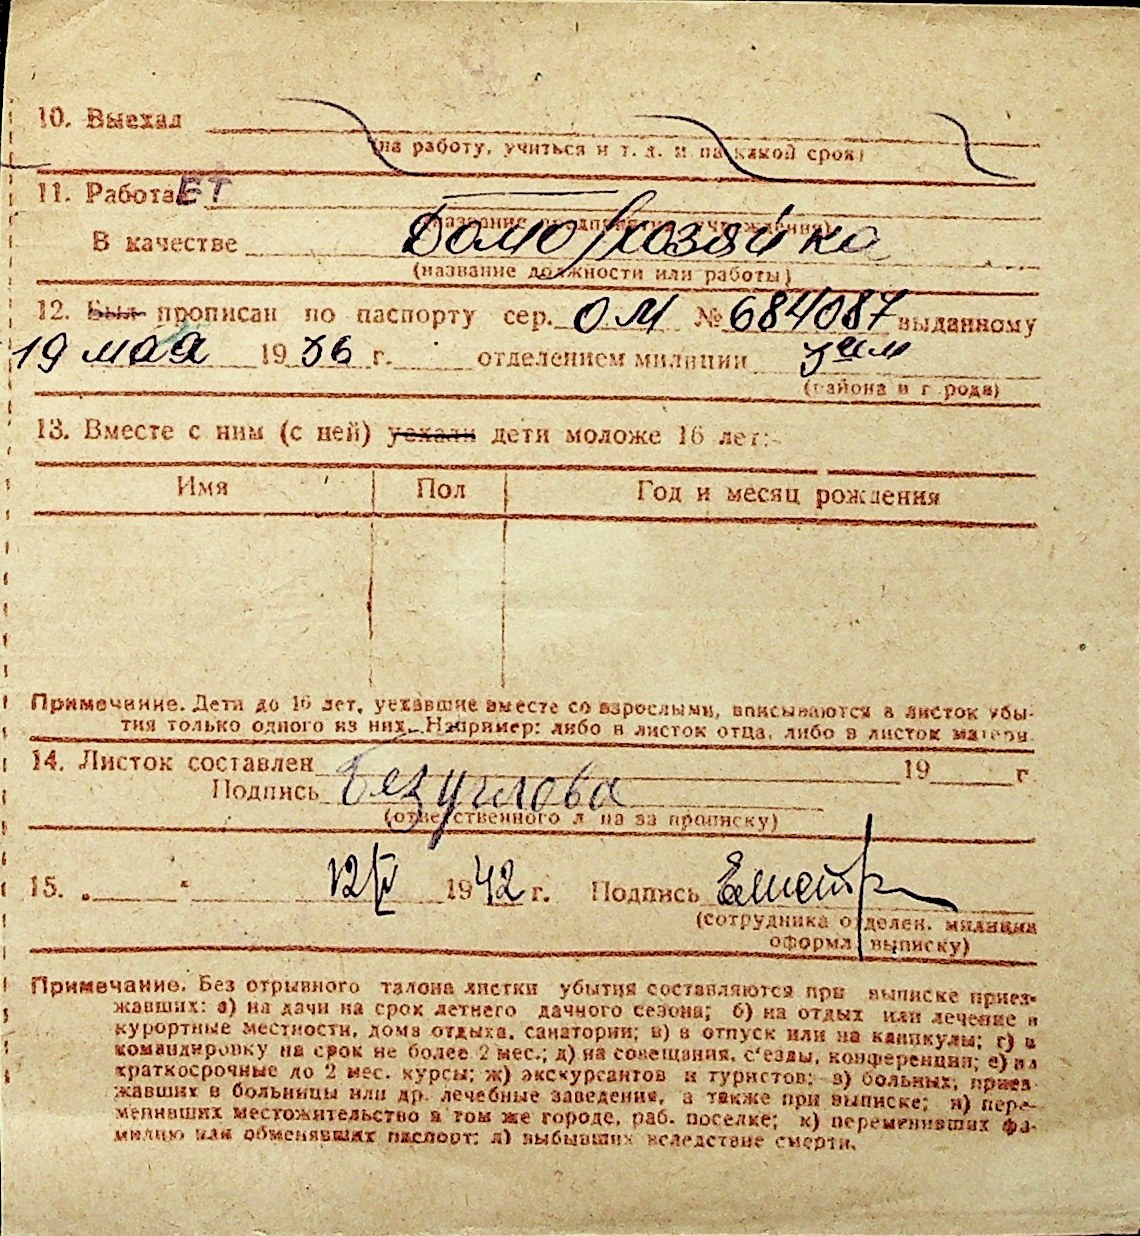 10. Выехал
(на работу, учиться и т. д. и на какой срок)
11. Работает
(название предприятия, учреждения)
В качестве Домохозяйка
(название должности или работы)
12. Был прописан по паспорту сер. ОМ № 684087 выданному
19 мая 1936 г. отделением милиции
(района и города)
13. Вместе с ним (с ней) уехали дети моложе 16 лет:
Имя Пол Год и месяц рождения
Примечание. Дети до 16 лет, уехавшие вместе со взрослыми, вписываются в листок убы-
тия только одного из них. Например: либо в листок отца, либо в листок матери.
14. Листок составлен 19 г.
Подпись Безуглова
(ответственного лица за прописку)
15. „ “ 12/V 1942 г. Подпись
(сотрудника отделен. милиции
оформл. выписку)
Примечание. Без отрывного талона листки убытия составляются при выписке приез-
жавших: а) на дачи на срок летнего дачного сезона; б) на отдых или лечение в
курортные местности, дома отдыха, санатории; в) в отпуск или на каникулы; г) в
командировку на срок не более 2 мес.; д) на совещания, с'езды, конференции; е) на
краткосрочные до 2 мес. курсы; ж) экскурсантов и туристов; з) больных, приез-
жавших в больницы или др. лечебные заведения, а также при выписке; и) пере-
менивших местожительство в том же городе, раб. поселке; к) переменивших фа-
милию или обменявших паспорт; л) выбывших вследствие смерти.